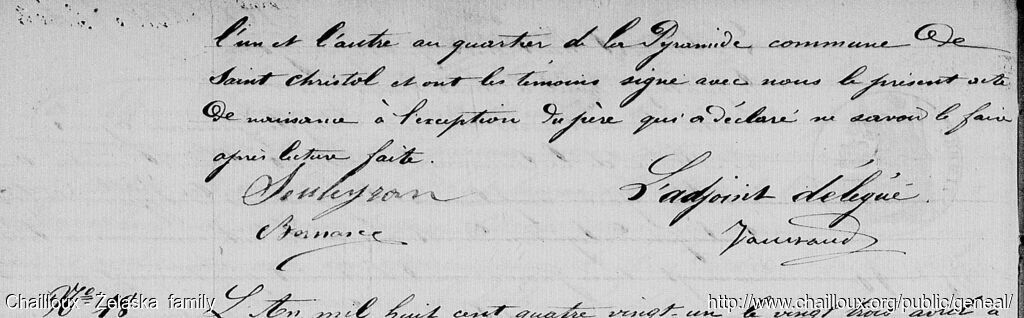 l'un et l'autre au quartier de la Pyramide commune De
Saint Christol et ont les témoins signé avec nous le présent acte
De naissance à l'exception du père qui a déclaré ne savoir le faire
après lecture faite.
L'adjoint délégué.
Bernard
Chailloux - Zelaska family
http://www.chailloux.org/public/geneal/
No 48
L'An mil huit cent quatre vingt-un le vingt trois avril à